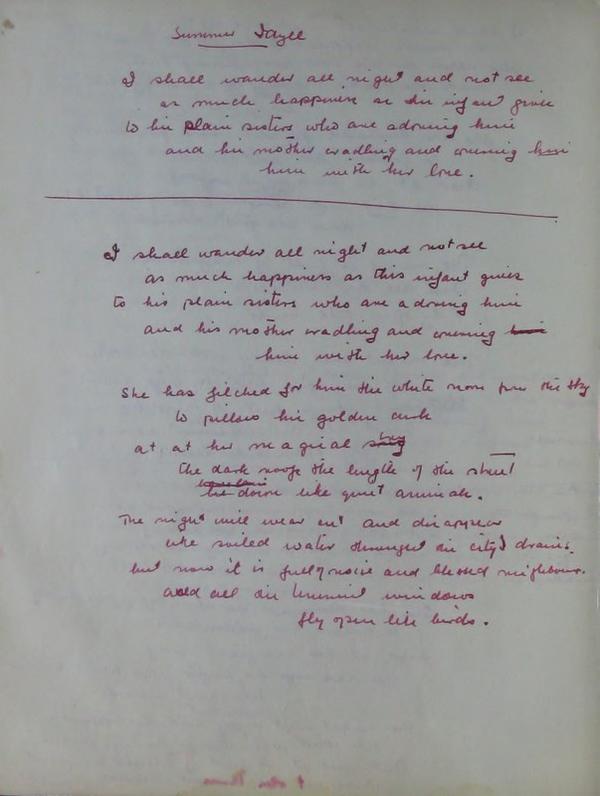 Summer Idyll
I shall wander all night and not see
as much happiness as this infant gives
to his plain sisters who are adoring him
and his mother cradling and covering him
him with her love.
I shall wander all night and not see
as much happiness as this infant gives
to his plain sisters who are adoring him
and his mother cradling and covering him
him with her love.
She has filched for him the white moon from the sky
to pillow his golden curls
at at her magical song
the dark roofs the length of the street
lie down like quiet animals.
The night will wear out and disappear
like soiled water through the city's drains
but now it is full of noise and blessed neighbours
and all the tenement windows
fly open like birds.